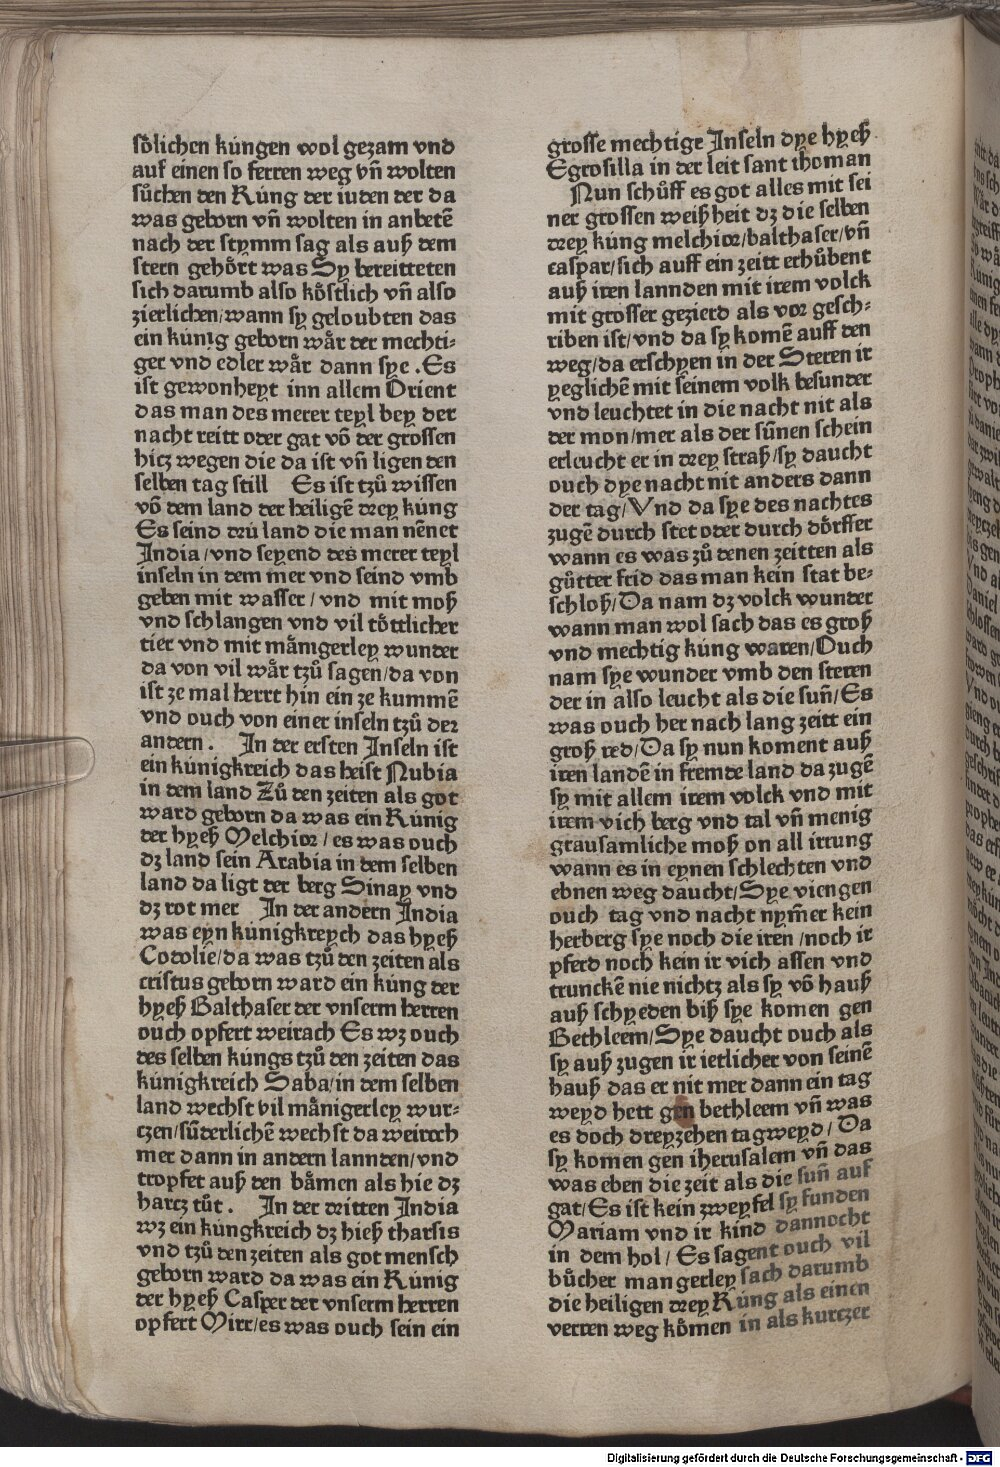 sölichen kúngen wol gezam vnd
auf einen so ferren weg vñ wolten
sůchen den Kúng der iuden der da
was geborn vñ wolten in anbetē
nach der stymm sag als auß dem
stern gehört was Sy bereitteten
sich darumb also kőstlich vñ also
zierlichen/wann sy geloubten das
ein kúnig geborn wår der mechti⸗
ger vnd edler wår dann sye .Es
ist gewonheyt inn allem Orient
das man des merer teyl bey der
nacht reitt oder gat vō der grossen
hicz wegen die da ist vñ ligen den
selben tag still Es ist tzů wissen
vō dem land der heiligē drey kúng
Es seind drú land die man nēnet
India/vnd seyend des merer teyl
inseln in dem mer vnd seind vmb
geben mit wasser/vnd mit moß
vnd schlangen vnd vil töttlicher
tier vnd mit mångerley wunder
da von vil wår tzů sagen/da von
ist ze mal herrt hin ein ze kummē
vnd ouch von einer inseln tzů der
andern. In der ersten Inseln ist
ein kúnigkreich das heist Nubia
in dem land Zů den zeiten als got
ward geborn da was ein Kúnig
der hyeß Melchior/es was ouch
dz land sein Arabia in dem selben
land da ligt der berg Sinay vnd
dz rot mer In der andern India
was eyn kúnigkreych das hyeß
Codolie/da was tzů den zeiten als
cristus geborn ward ein kúng der
hyeß Balthaser der vnserm herren
ouch opfert weirach Es wz ouch
des selben kúngs tzů den zeiten das
kúnigkreich Saba/in dem selben
land wechst vil månigerley wur⸗
czen/sūderlichē wechst da weiroch
mer dann in andern lannden/vnd
tropfet auß den båmen als hie dz
harcz tůt. In der dritten India
wz ein kúngkreich dz hieß tharsis
vnd tzů den zeiten als got mensch
geborn ward da was ein Kúnig
der hyeß Casper der vnserm herren
opfert Mirr/es was ouch sein ein
grosse mechtige Inseln dye hyeß
Egrosilla in der leit sant thoman
Nun schůff es got alles mit sei
ner grossen weißheit dz die selben
drey kúng melchior/balthaser/vñ
caspar/sich auff ein zeitt erhůbent
auß iren lannden mit irem volck
mit grosser gezierd als vor gesch⸗
riben ist/vnd da sy komē auff den
weg/da erschyen in der Steren ir
yeglichē mit seinem volk besunder
vnd leuchtet in die nacht nit als
der mon/mer als der sūnen schein
erleucht er in drey straß/sy daucht
ouch dye nacht nit anders dann
der tag/Vnd da sye des nachtes
zugē durch stet oder durch dörffer
wann es was zů denen zeitten als
gůtter frid das man kein stat be⸗
schloß/Da nam dz volck wunder
wann man wol sach das es groß
vnd mechtig kúng waren/Ouch
nam sye wunder vmb den steren
der in also leucht als die suñ/Es
was ouch her nach lang zeitt ein
groß red/Da sy nun koment auß
iren landē in fremde land da zugē
sy mit allem irem volck vnd mit
irem vich berg vnd tal vñ menig
grausamliche moß on all irrung
wann es in eynen schlechten vnd
ebnen weg daucht/Sye viengen
ouch tag vnd nacht nym̄er kein
herberg sye noch die iren/noch ir
pferd noch kein ir vich assen vnd
trunckē nie nichtz als sy vō hauß
auß schyeden biß sye komen gen
Bethleem/Sye daucht ouch als
sy auß zugen ir ietlicher von seinē
hauß das er nit mer dann ein tag
weyd hett gen bethleem vñ was
es doch dreyzehen tagweyd/Da
sy komen gen iherusalem vñ das
was eben die zeit als die suñ auf
gat/Es ist kein zweyfel sy funden
Mariam vnd ir kind dannocht
in dem hol/Es sagent ouch vil
bůcher mangerley sach darumb
die heiligen drey Kúng als einen
verren weg kőmen in als kurczer
Digitalisierung gefördert durch die Deutsche Forschungsgemeinschaft - DFG